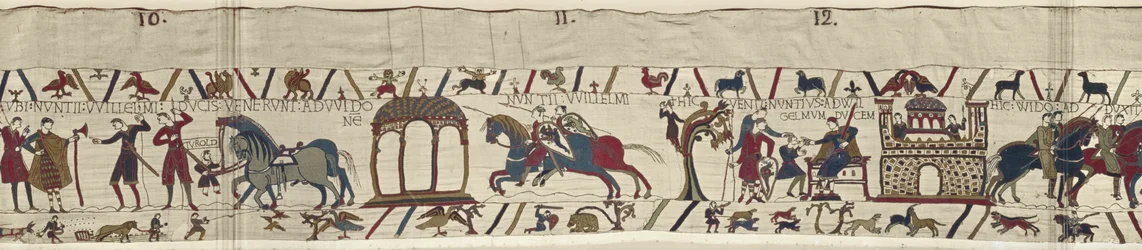 10.
11.
12.
VBI: NVNTII: VVILLELMI: DVCIS: VENERVNT: AD VVIDO
NĒ
TVROLD
NVNTII: VVILLELMI
HIC VENIT: NVNTIVS: AD WIL
GELMVM DVCEM
HIC: WIDO: AD
DVXIT